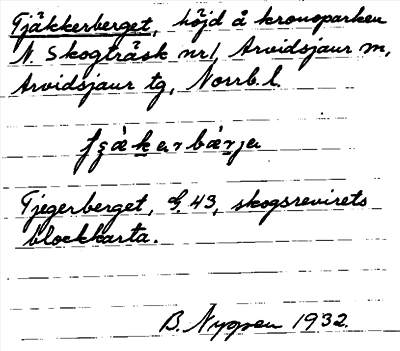 Tjäkkerberget, höjd å kronoparken
N. Skogträsk nr 1, Arvidsjaur m,
Arvidsjaur tg, Norrb. l.
Tjegerberget, 43, skogsrevirets
blockkarta.
B. Nygren 1932.